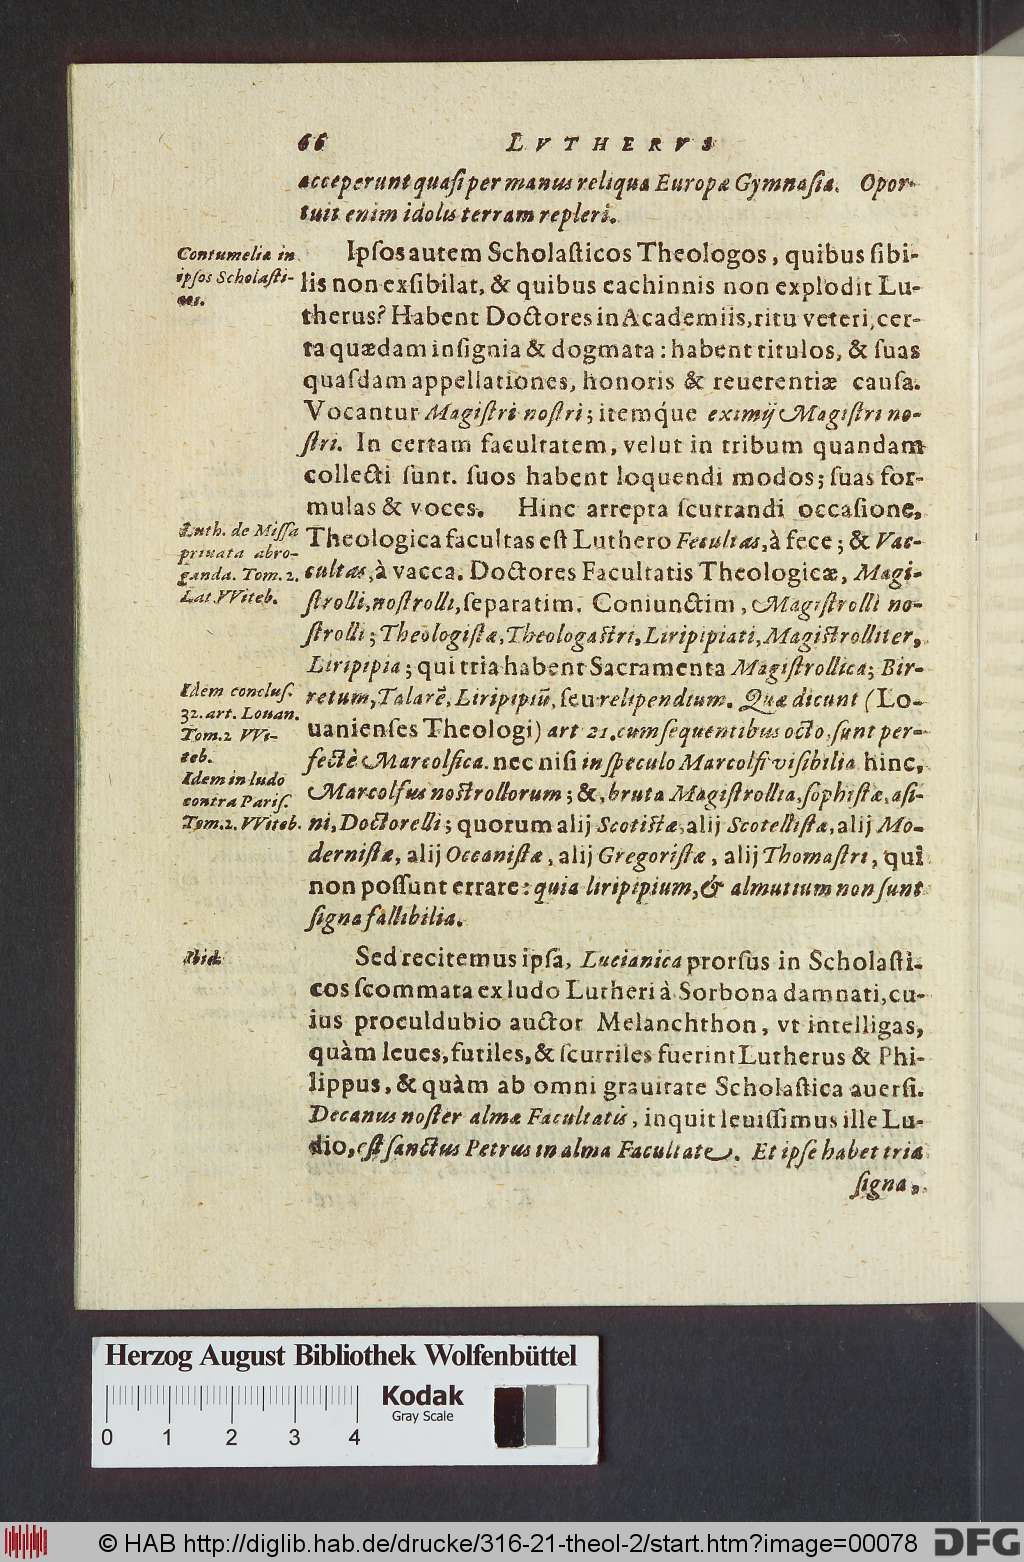 66 LVTHERVS
acceperunt quasi per manus reliqua Europæ Gymnasia. Opor-
tuit enim idolis terram repleri.
Contumelia in
ipsos Scholasti-
cos.
Ipsos autem Scholasticos Theologos, quibus sibi-
lis non exsibilat, & quibus cachinnis non explodit Lu-
therus? Habent Doctores in Academiis, ritu veteri, cer-
ta quædam insignia & dogmata: habent titulos, & suas
quasdam appellationes, honoris & reuerentiæ causa.
Vocantur Magistri nostri; itemq́ue eximij Magistri no-
stri. In certam facultatem, velut in tribum quandam
collecti sunt. suos habent loquendi modos; suas for-
mulas & voces. Hinc arrepta scurrandi occasione,
Luth. de Missa
priuata abro-
ganda. Tom. 2.
Lat. VViteb.
Theologica facultas est Luthero Fecultas, à fece; & Vac-
cultas, à vacca. Doctores Facultatis Theologicæ, Magi-
strolli, nostrolli, separatim. Coniunctim, Magistrolli no-
strolli; Theologistæ, Theologastri, Liripipiati, Magistrolliter,
Liripipia; qui tria habent Sacramenta Magistrollica; Bir-
Idem conclus.
32. art. Louan.
Tom. 2 VVi-
teb.
Idem in ludo
contra Paris.
Tom. 2. VViteb.
retum, Talarē, Liripipiū, seu relipendium. Quæ dicunt (Lo-
uanienses Theologi) art 21. cum sequentibus octo, sunt per-
fectè Marcolfica. nec nisi in speculo Marcolfi visibilia hinc,
Marcolfus nostrollorum; &, bruta Magistrollia, sophistæ, asi-
ni, Doctorelli; quorum alij Scotistæ, alij Scotellistæ, alij Mo-
dernistæ, alij Occanistæ, alij Gregoristæ, alij Thomastri, qui
non possunt errare: quia liripipium, & almutium non sunt
signa fallibilia.
Ibid.
Sed recitemus ipsa, Lucianica prorsus in Scholasti-
cos scommata ex ludo Lutheri à Sorbona damnati, cu-
ius proculdubio auctor Melanchthon, vt intelligas,
quàm leues, futiles, & scurriles fuerint Lutherus & Phi-
lippus, & quàm ab omni grauitate Scholastica auersi.
Decanus noster almæ Facultatis, inquit leuissimus ille Lu-
dio, est sanctus Petrus in alma Facultate. Et ipse habet tria
signa,
Herzog August Bibliothek Wolfenbüttel
Kodak
Gray Scale
0 1 2 3 4
© HAB http://diglib.hab.de/drucke/316-21-theol-2/start.htm?image=00078 DFG